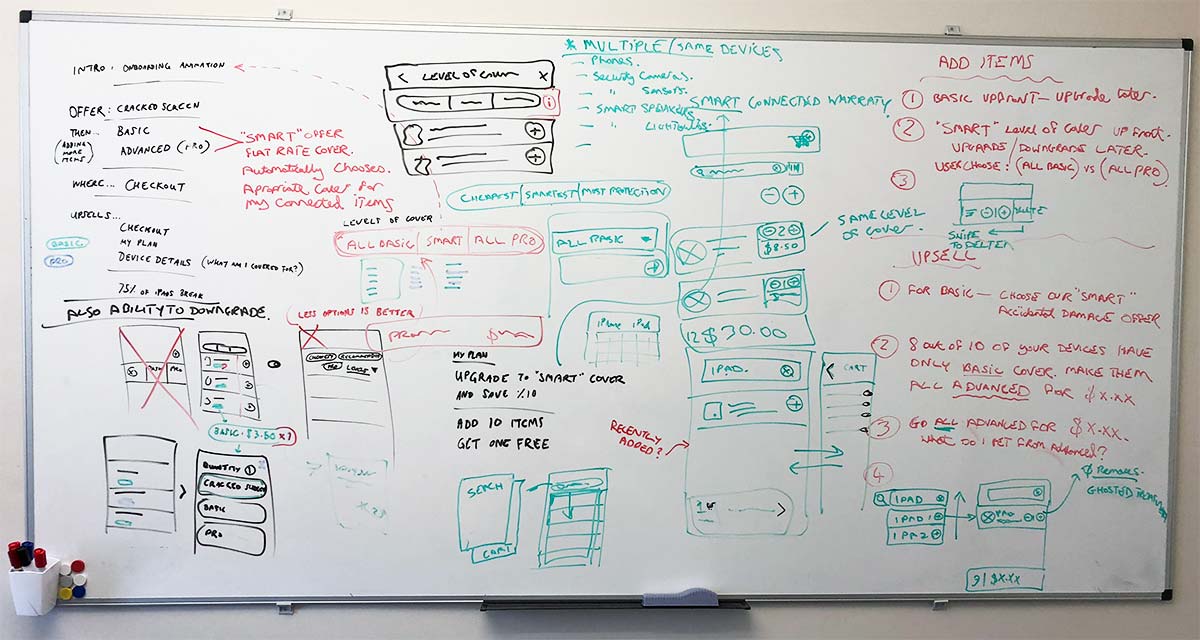 INTRO: ONBOARDING ANIMATION
OFFER: CRACKED SCREEN
THEN... BASIC
(ADDING MORE ITEMS)
ADVANCED (PRO)
WHERE... CHECKOUT
UPSELLS...
CHECKOUT
MY PLAN
DEVICE DETAILS (WHAT AM I COVERED FOR?)
BASIC
PRO
75% OF IPADS BREAK
ALSO ABILITY TO DOWNGRADE.
"SMART" OFFER
FLAT RATE COVER.
Automatically Chooses.
Apropriate Cover for
my Connected items
BASIC · $3.50 x 3
QUANTITY 1
CRACKED SCREEN
BASIC
PRO
< LEVEL OF COVER X
i
LEVELS OF COVER
ALL BASIC | SMART | ALL PRO
CHEAPEST | SMARTEST | MOST PROTECTION
LESS OPTIONS IS BETTER
MY PLAN
UPGRADE TO "SMART" COVER
AND SAVE %10
ADD 10 ITEMS
GET ONE FREE
SEARCH
CART
* MULTIPLE/SAME DEVICES
- Phones.
- Security Cameras.
- " Sensors.
- SMART SPEAKERS
- "
SMART CONNECTED WARRATY
ALL BASIC
iPhone iPad
2
$8.50
SAME LEVEL
OF COVER.
12 $30.00
IPAD.
RECENTLY
ADDED?
< CART
ADD ITEMS
1 BASIC UPFRONT - Upgrade later.
2 "SMART" Level of cover up front.
UPGRADE / DOWNGRADE LATER.
USER CHOOSE: (ALL BASIC) vs (ALL PRO)
3
DELETE
SWIPE
TO DELETE
UPSELL
1 FOR BASIC - CHOOSE OUR "SMART"
Accidental DAMAGE OFFER
2 8 OUT OF 10 OF YOUR DEVICES HAVE
ONLY BASIC COVER. MAKE THEM
ALL ADVANCED FOR $X.XX
3 GO ALL ADVANCED FOR $X.XX.
What do I get from Advanced?
4
IPAD
IPAD 1
IPA2
IPAD
Removes
GHOSTED
$X.XX